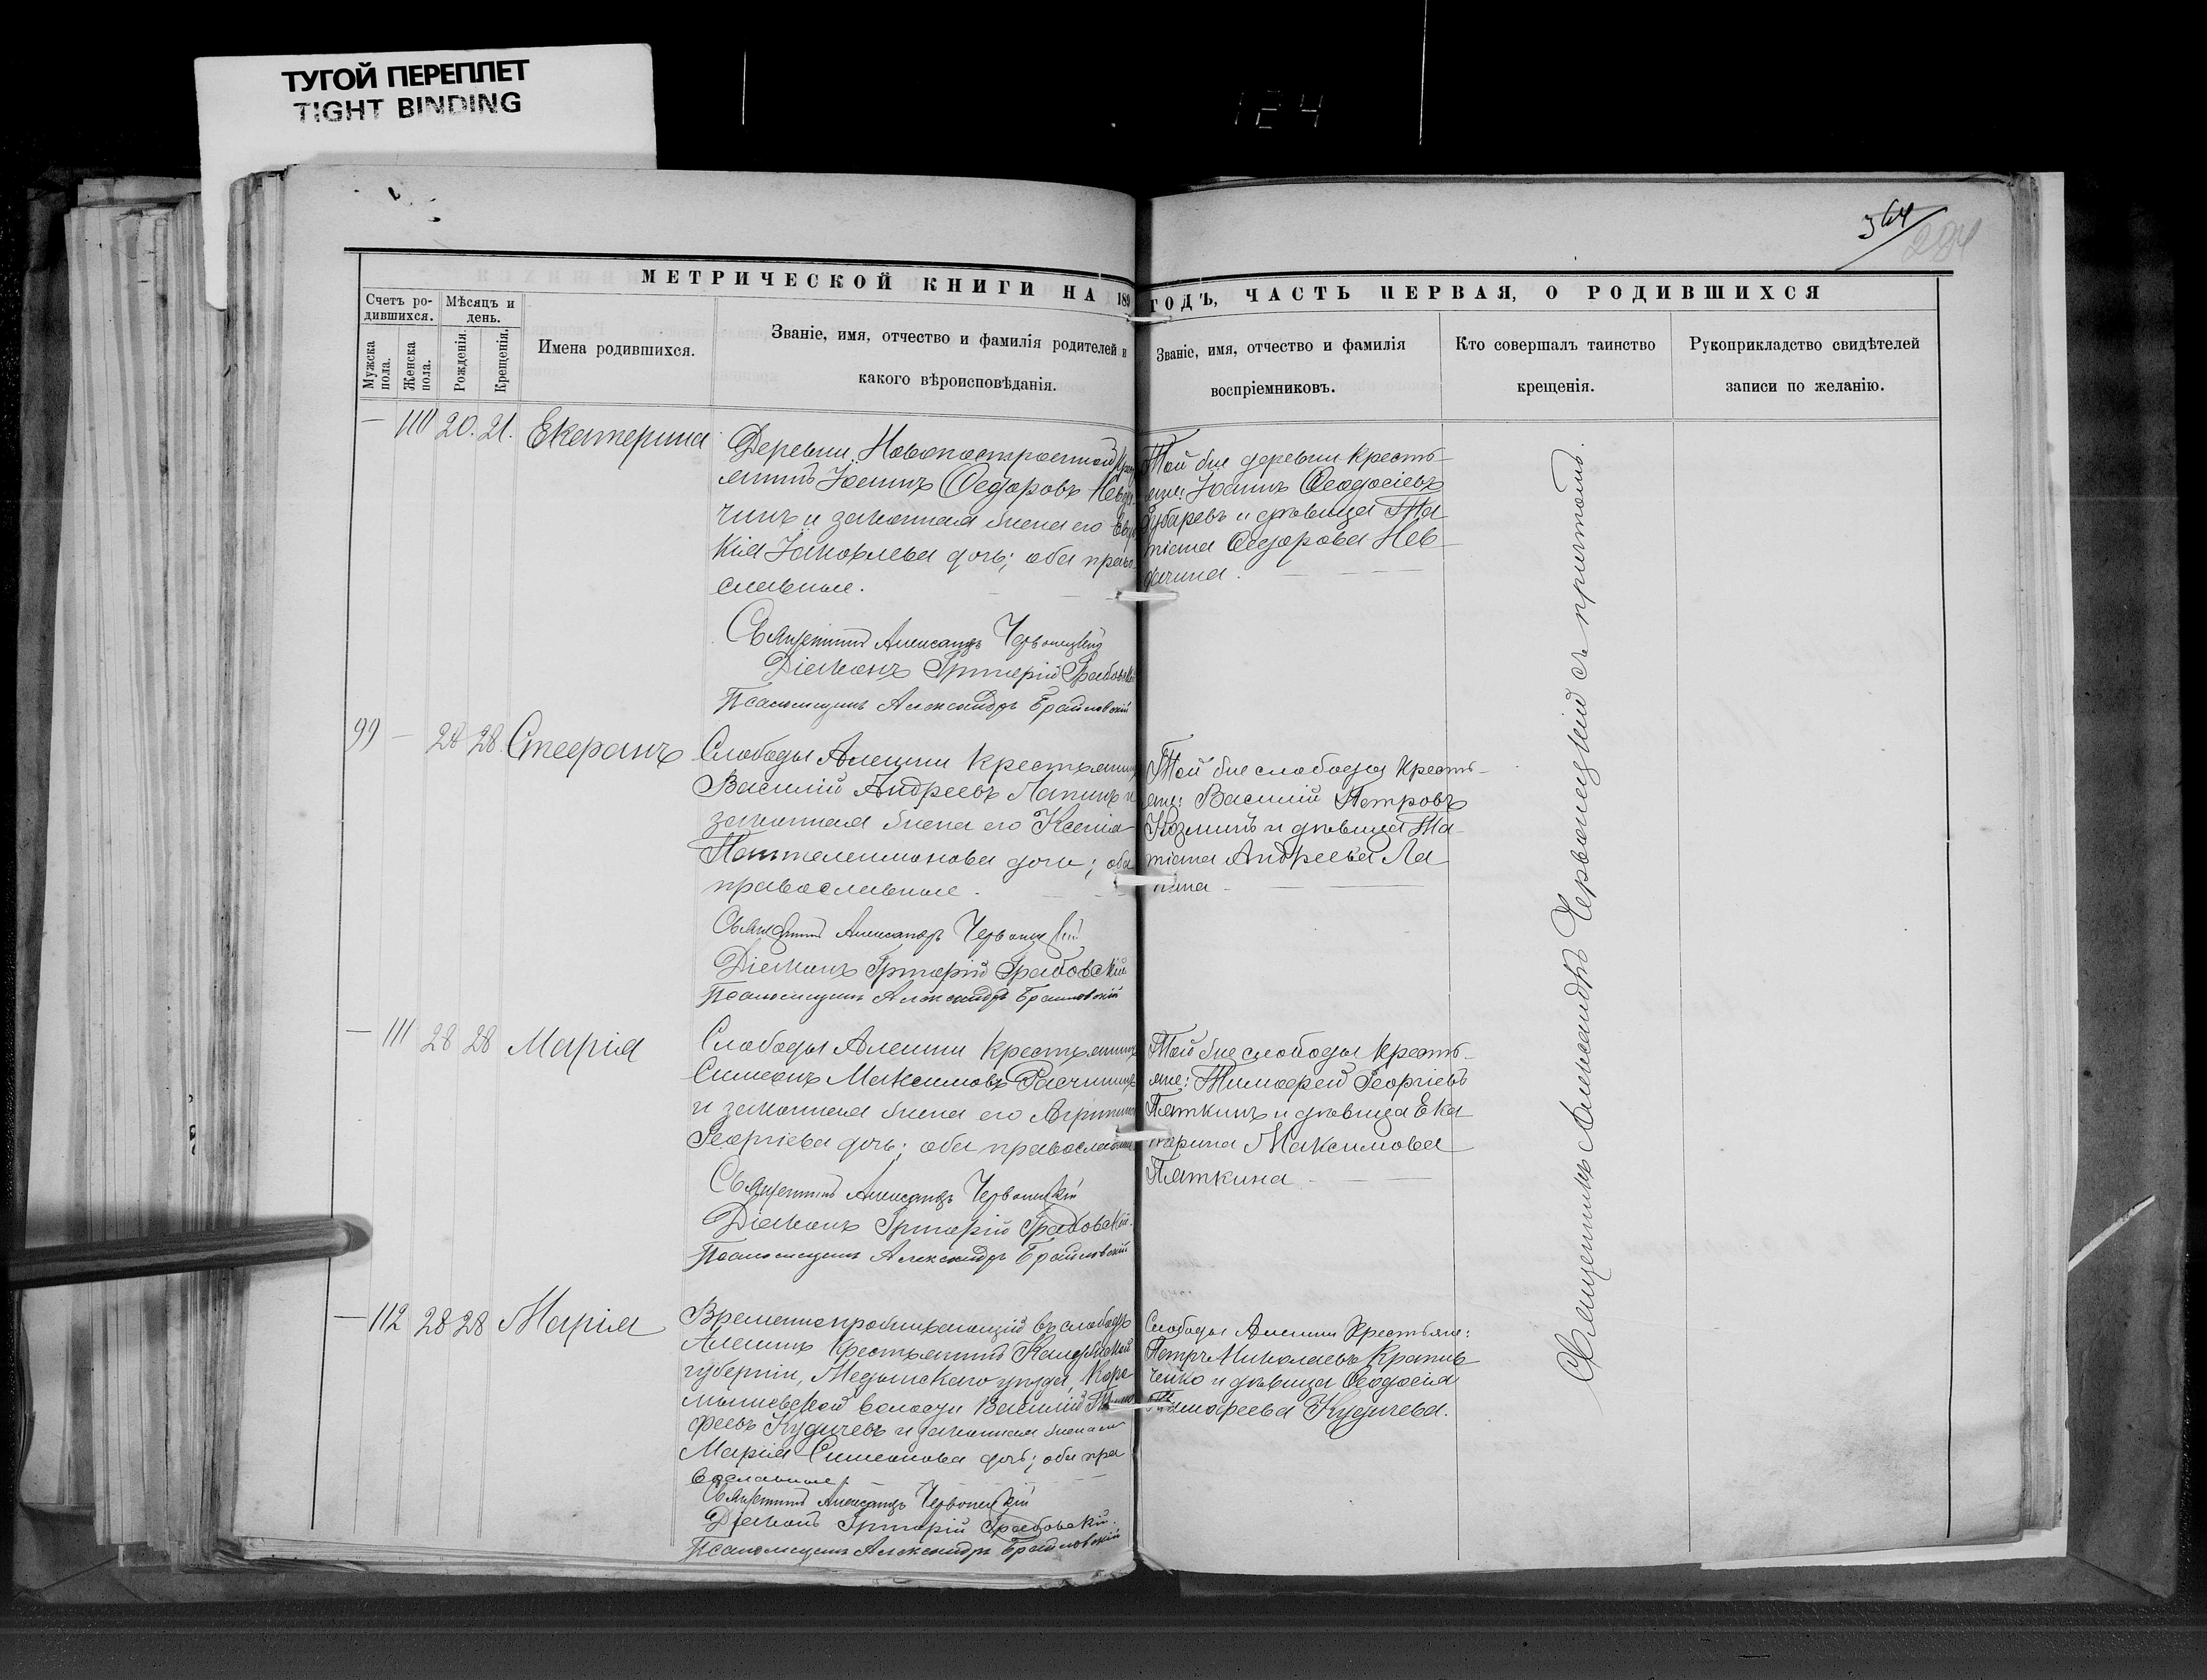 ТУГОЙ ПЕРЕПЛЕТ
TIGHT BINDING
124
364
284
МЕТРИЧЕСКОЙ КНИГИ НА 189
ГОДЪ, ЧАСТЬ ПЕРВАЯ, О РОДИВШИХСЯ
Счетъ ро-
дившихся.
Мѣсяцъ и
день.
Мужска
пола.
Женска
пола.
Рожденія.
Крещенія.
Имена родившихся.
Званіе, имя, отчество и фамилія родителей и
какого вѣроисповѣданія.
Званіе, имя, отчество и фамилія
воспріемниковъ.
Кто совершалъ таинство
крещенія.
Рукоприкладство свидѣтелей
записи по желанію.
— 20. 21. Екатерина
Деревни Новопостроенной
Іоаннъ Ѳедоровъ
чинъ и законная жена его
кія Іаковлева дочь; оба право
славные.
Священникъ Александръ Червонецкій
Діаконъ Григорій Грабовскій
Псаломщикъ Александръ Браиловскій
Той же деревни кресть-
яне: Іоаннъ Ѳеодосіевъ
Губаревъ и дѣвица Та
тіана Ѳедорова Нев
дачина.
99 — 28 28 Стефанъ
Слободы Алешни крестьянинъ
Василій Андреевъ Лапинъ и
законная жена его Ксенія
Пантелеимонова дочь; оба
православные.
Священникъ Александръ Червонецкій
Діаконъ Григорій Грабовскій
Псаломщикъ Александръ Браиловскій
Той же слободы кресть-
яне: Василій Петровъ
Козминъ и дѣвица Та-
тіана Андреева Ла
пина
— 111 28 28 Марія
Слободы Алешни крестьянинъ
Симеонъ Максимовъ
и законная жена его Агрипина
Георгіева дочь; оба православные
Священникъ Александръ Червонецкій
Діаконъ Григорій Грабовскій.
Псаломщикъ Александръ Браиловскій
Той же слободы кресть-
яне: Тимофей Георгіевъ
Пяткинъ и дѣвица Ека
терина Максимова
Пяткина
— 112 28 28 Марія
Временнопроживающій въ слободѣ
Алешнѣ крестьянинъ Калужской
губерніи, Медынскаго уѣзда,
волости Василій Тимо
феевъ Кудичевъ и законная жена его
Марія Симеонова дочь; оба пра
вославные.
Священникъ Александръ Червонецкій
Діаконъ Григорій Грабовскій.
Псаломщикъ Александръ Браиловскій
Слободы Алешни крестьяне:
Петръ Николаевъ Крапив
ченко и дѣвица Ѳеодосія
Тимофеева Кудичева.
Священникъ Александръ Червонецкій съ причтомъ.